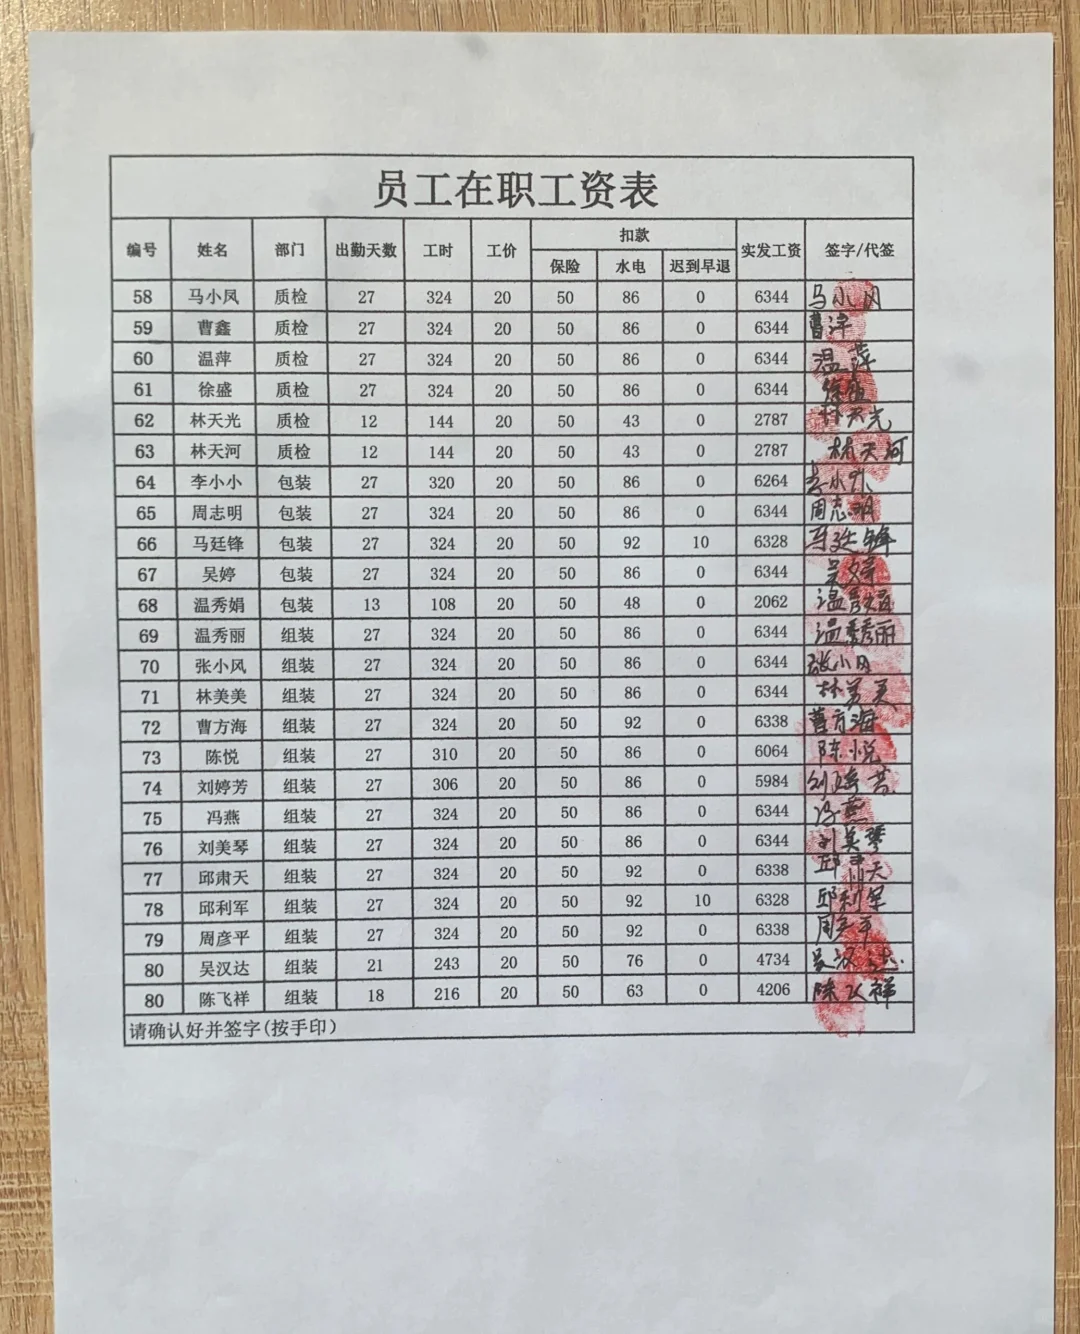 员工在职工资表
编号 姓名 部门 出勤天数 工时 工价 扣款 实发工资 签字/代签
保险 水电 迟到早退
58 马小凤 质检 27 324 20 50 86 0 6344 马小凤
59 曹鑫 质检 27 324 20 50 86 0 6344 曹
60 温萍 质检 27 324 20 50 86 0 6344 温萍
61 徐盛 质检 27 324 20 50 86 0 6344 徐盛
62 林天光 质检 12 144 20 50 43 0 2787 林天光
63 林天河 质检 12 144 20 50 43 0 2787 林天河
64 李小小 包装 27 320 20 50 86 0 6264 李小小
65 周志明 包装 27 324 20 50 86 0 6344 周志明
66 马廷锋 包装 27 324 20 50 92 10 6328 马廷锋
67 吴婷 包装 27 324 20 50 86 0 6344 吴婷
68 温秀娟 包装 13 108 20 50 48 0 2062 温秀娟
69 温秀丽 组装 27 324 20 50 86 0 6344 温秀丽
70 张小风 组装 27 324 20 50 86 0 6344 张小风
71 林美美 组装 27 324 20 50 86 0 6344 林美美
72 曹方海 组装 27 324 20 50 92 0 6338 曹方海
73 陈悦 组装 27 310 20 50 86 0 6064 陈悦
74 刘婷芳 组装 27 306 20 50 86 0 5984 刘婷芳
75 冯燕 组装 27 324 20 50 86 0 6344 冯燕
76 刘美琴 组装 27 324 20 50 86 0 6344 刘美琴
77 邱肃天 组装 27 324 20 50 92 0 6338 邱肃天
78 邱利军 组装 27 324 20 50 92 10 6328 邱利军
79 周彦平 组装 27 324 20 50 92 0 6338 周彦平
80 吴汉达 组装 21 243 20 50 76 0 4734 吴汉达
80 陈飞祥 组装 18 216 20 50 63 0 4206 陈飞祥
请确认好并签字(按手印)